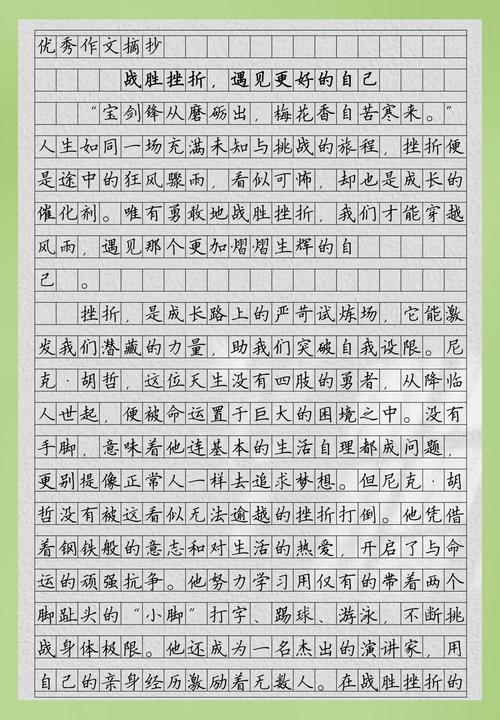 优秀作文摘抄
战胜挫折，遇见更好的自己
“宝剑锋从磨砺出，梅花香自苦寒来。”
人生如同一场充满未知与挑战的旅程，挫折便
是途中的狂风骤雨，看似可怖，却也是成长的
催化剂。唯有勇敢地战胜挫折，我们才能穿越
风雨，遇见那个更加熠熠生辉的自
己。
挫折，是成长路上的严苛试炼场，它能激
发我们潜藏的力量，助我们突破自我设限。尼
克·胡哲，这位天生没有四肢的勇者，从降临
人世起，便被命运置于巨大的困境之中。没有
手脚，意味着他连基本的生活自理都成问题，
更别提像正常人一样去追求梦想。但尼克·胡
哲没有被这看似无法逾越的挫折打倒。他凭借
着钢铁般的意志和对生活的热爱，开启了与命
运的顽强抗争。他努力学习用仅有的带着两个
脚趾头的“小脚”打字、踢球、游泳，不断挑
战身体极限。他还成为一名杰出的演讲家，用
自己的亲身经历激励着无数人。在战胜挫折的